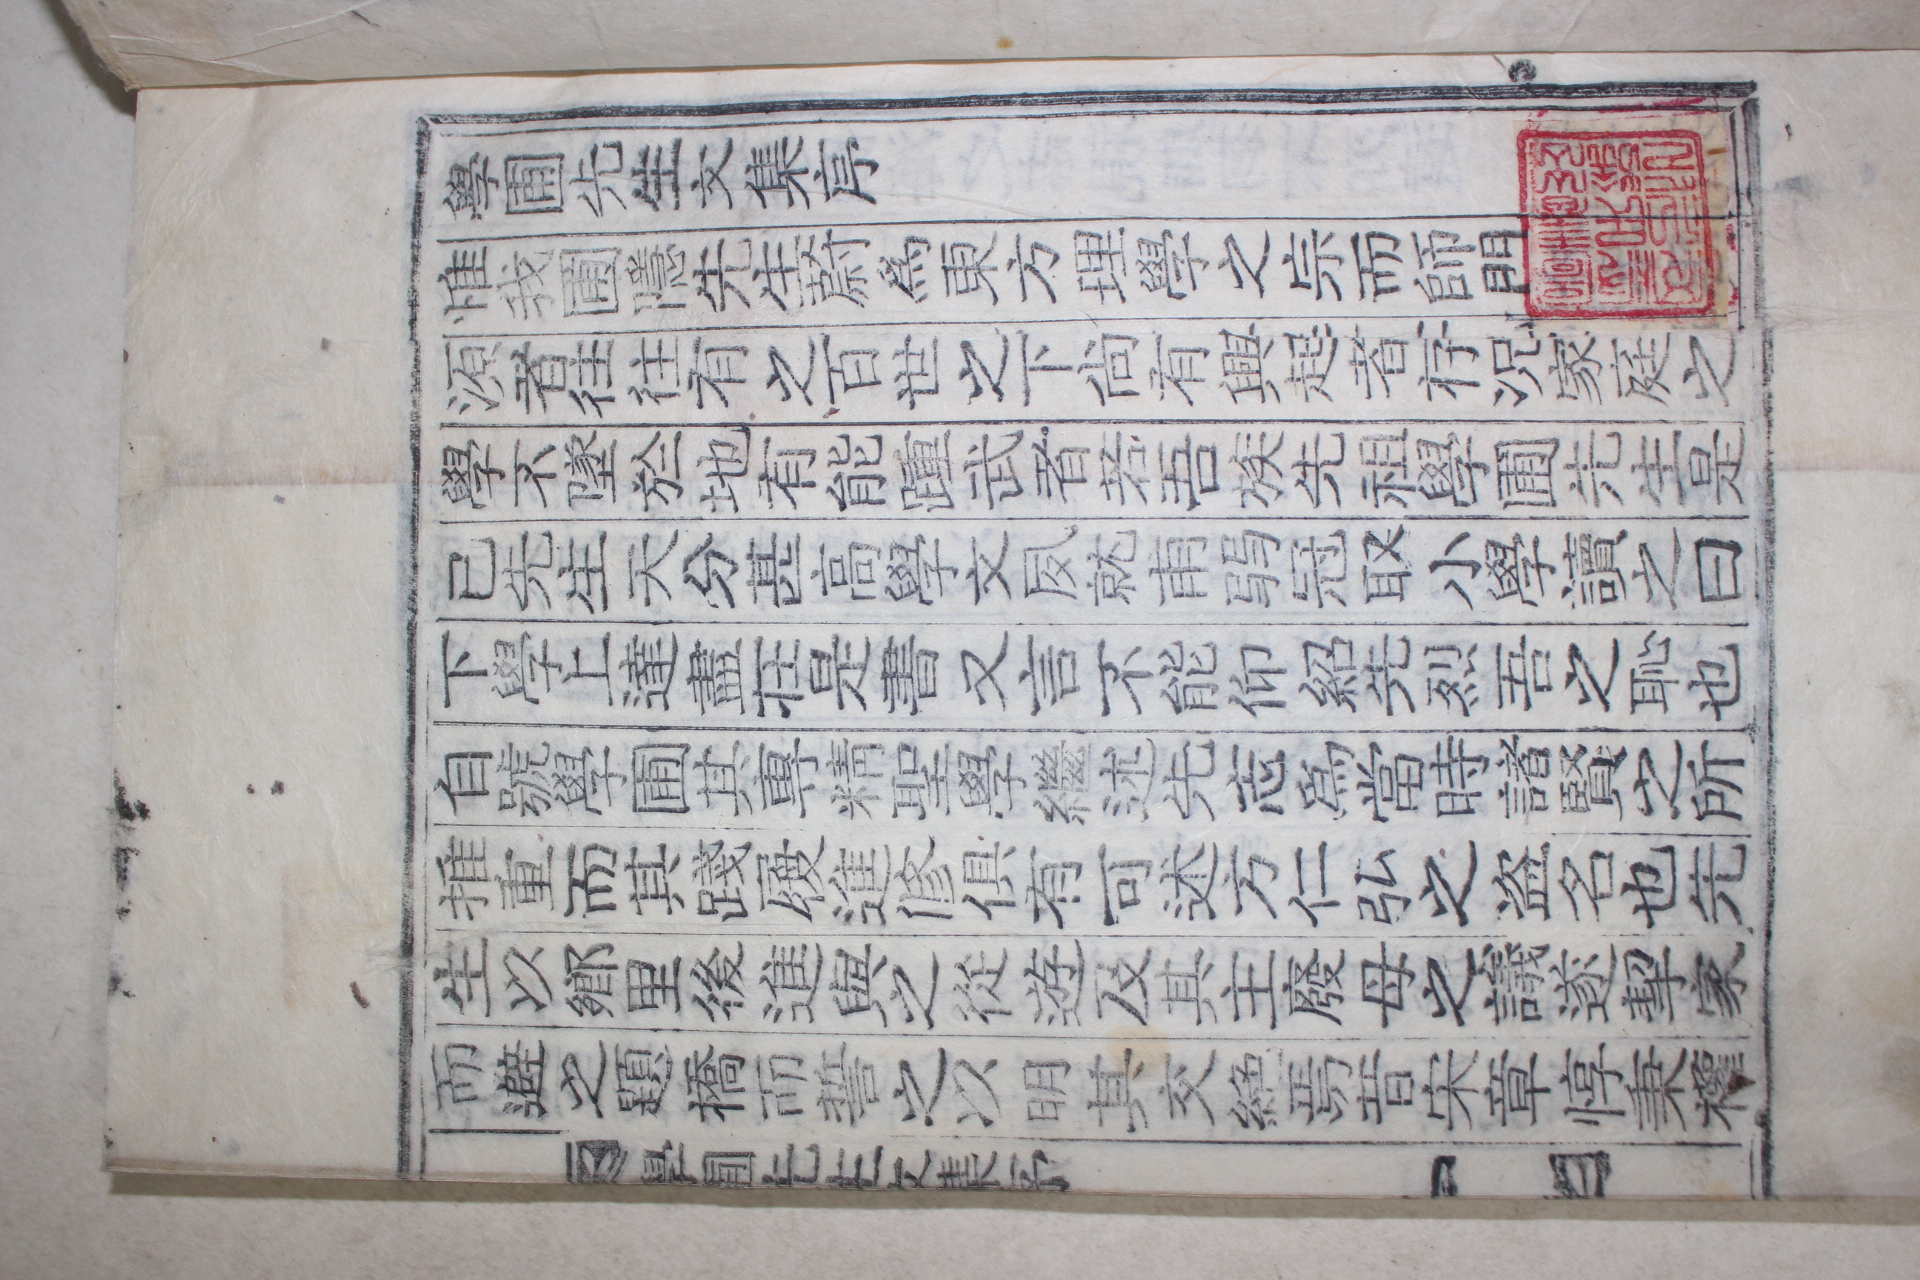 學圃先生文集序
惟我圃隱先生蔚爲東方理學之宗而師門
源者往往有之百世之下尙有興起者存况家庭之
學不墜於地有能踵武者若吾族先祖學圃先生是
已先生天分甚高學文夙就甫弱冠取小學讀之曰
下學上達盡在是書又言不能仰紹先烈吾之恥也
自號學圃其專精聖學繼述先志爲當時諸賢之所
推重而其踐履進修俱有可述方仁弘之盜名也先
生以鄕里後進與之從遊及其主廢母之議遂挈家
而避之題橋而誓之以明其交絶焉昔宋章惇秉
學圃先生文集序